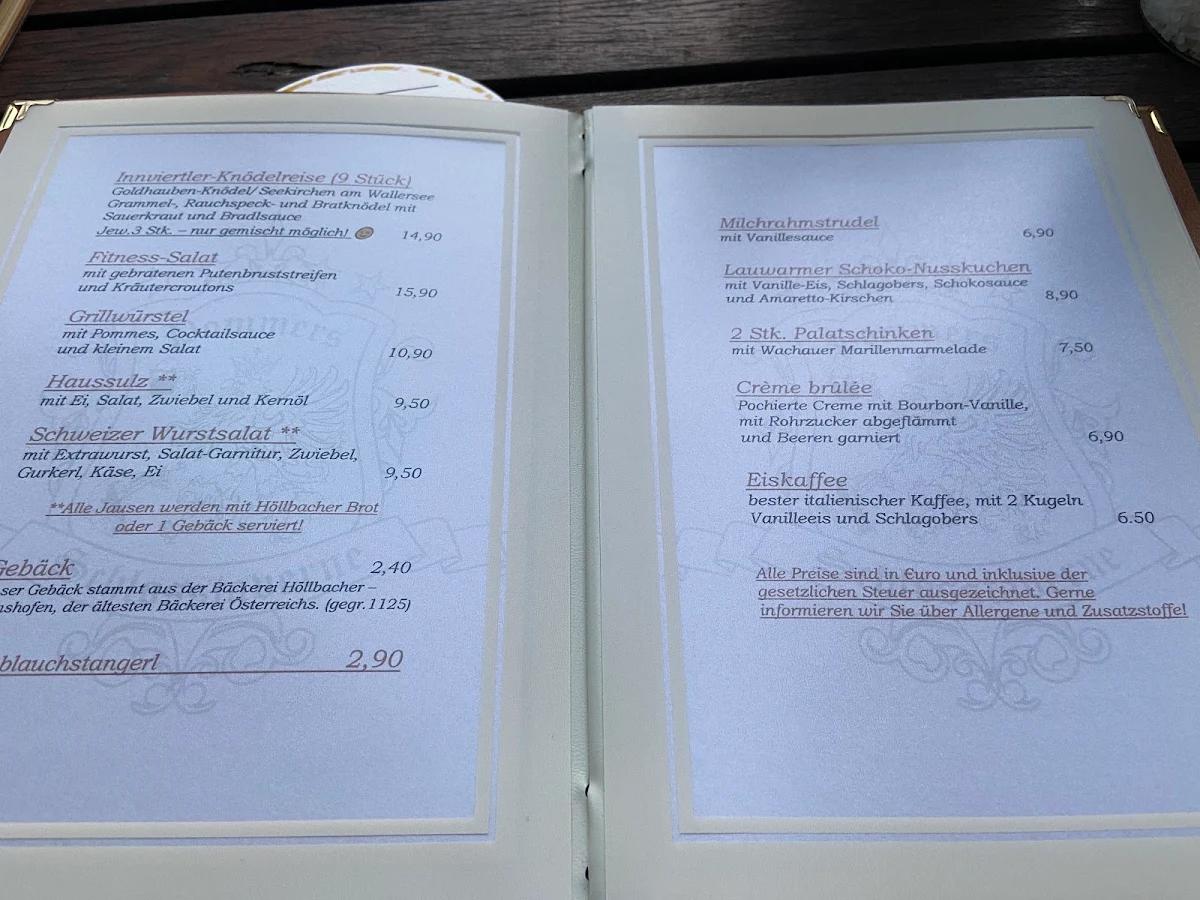 Innviertler-Knödelreise (9 Stück)
Goldhauben-Knödel/ Seekirchen am Wallersee
Grammel-, Rauchspeck- und Bratknödel mit
Sauerkraut und Bradlsauce
Jew.3 Stk. – nur gemischt möglich! 14,90
Fitness-Salat
mit gebratenen Putenbruststreifen
und Kräutercroutons 15,90
Grillwürstel
mit Pommes, Cocktailsauce
und kleinem Salat 10,90
Haussulz **
mit Ei, Salat, Zwiebel und Kernöl 9,50
Schweizer Wurstsalat **
mit Extrawurst, Salat-Garnitur, Zwiebel,
Gurkerl, Käse, Ei 9,50
**Alle Jausen werden mit Höllbacher Brot
oder 1 Gebäck serviert!
Gebäck 2,40
ser Gebäck stammt aus der Bäckerei Höllbacher –
shofen, der ältesten Bäckerei Österreichs. (gegr.1125)
blauchstangerl 2,90
Milchrahmstrudel
mit Vanillesauce 6,90
Lauwarmer Schoko-Nusskuchen
mit Vanille-Eis, Schlagobers, Schokosauce
und Amaretto-Kirschen 8,90
2 Stk. Palatschinken
mit Wachauer Marillenmarmelade 7,50
Crème brûlée
Pochierte Creme mit Bourbon-Vanille,
mit Rohrzucker abgeflämmt
und Beeren garniert 6,90
Eiskaffee
bester italienischer Kaffee, mit 2 Kugeln
Vanilleeis und Schlagobers 6.50
Alle Preise sind in €uro und inklusive der
gesetzlichen Steuer ausgezeichnet. Gerne
informieren wir Sie über Allergene und Zusatzstoffe!